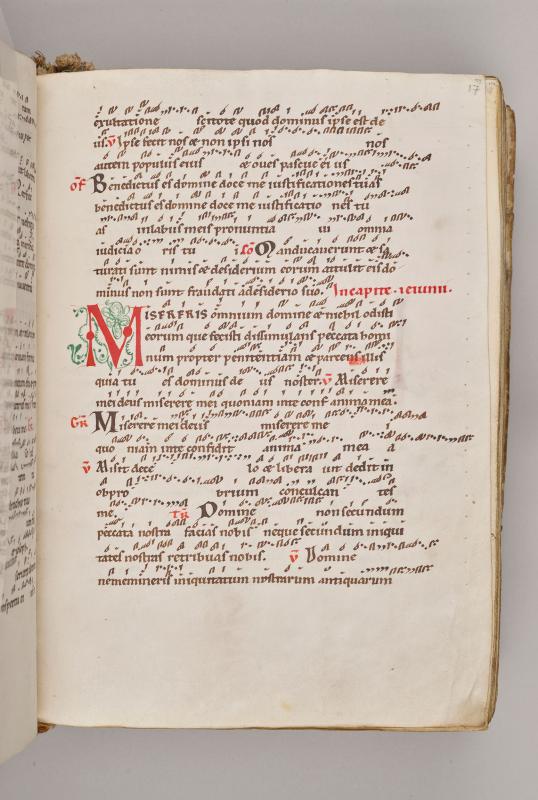 17
exultatione scitote quod dominus ipse est de
us. v̄ Ipse fecit nos & non ipsi nos nos
autem populus eius & oues pascue ei us
of Benedictus es domine doce me iustificationes tuas
benedictus es domine doce me iustificatio nes tu
as inlabiis meis pronuntia ui omnia
iudicia o ris tu i. Co Manducauerunt & sa
turati sunt nimis & desiderium eorum attulit eis do
minus non sunt fraudati adesiderio suo. Incapite ieiunii.
MISERERIS omnium domine & nichil odisti
eorum que fecisti dissimulans peccata homi
num propter penitentiam & parcens illis
quia tu es dominus de us noster. v̄ Miserere
mei deus miserere mei quoniam inte conf. anima mea.
GR Miserere mei deus miserere me i
quo niam inte confidit anima mea a
v̄ Misit de ce lo & libera uit dedit in
obpro brium conculcan tes
me. TR Domine non secundum
peccata nostra facias nobis neque secundum iniqui
tates nostras retribuas nobis. v̄ Domine
nememineris iniquitatum nostrarum antiquarum